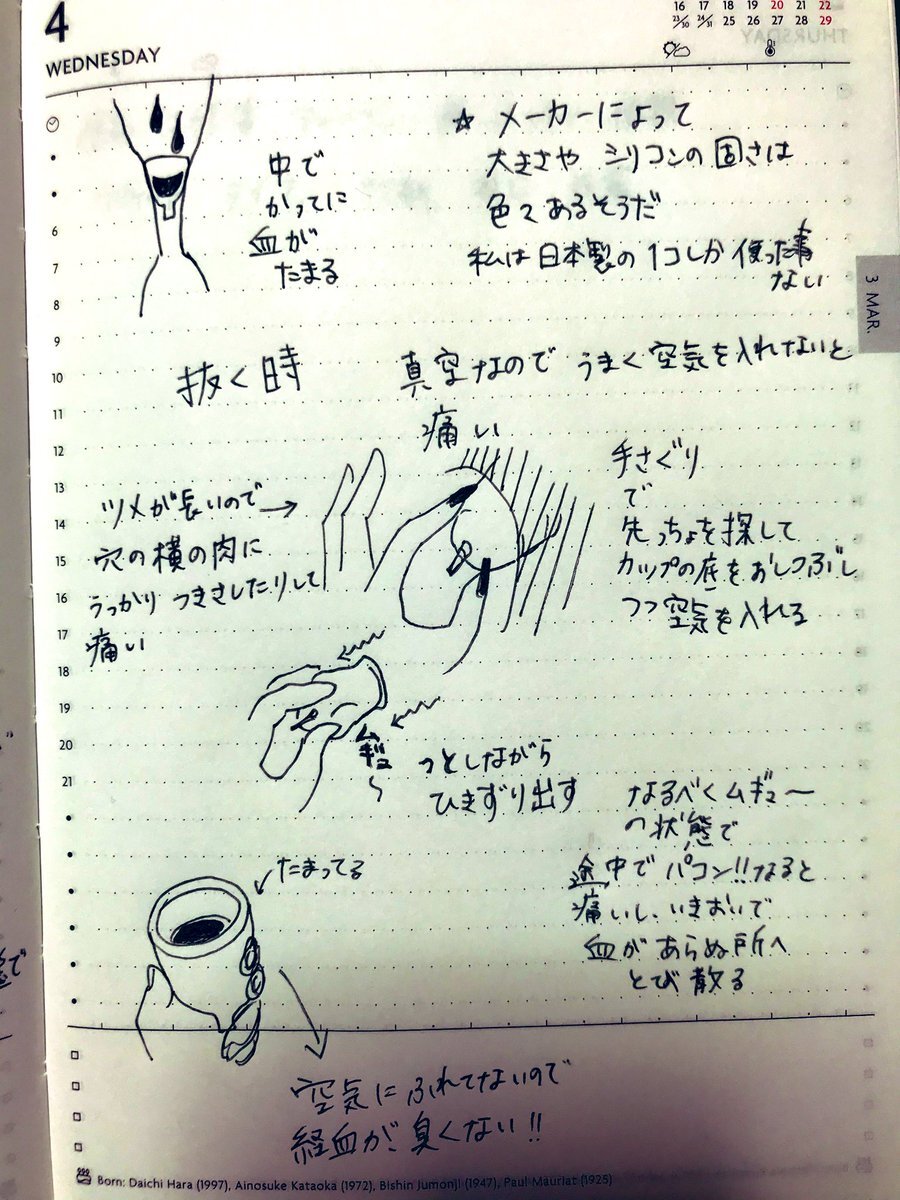 4
WEDNESDAY
16 17 18 19 20 21 22
23/30 24/31 25 26 27 28 29
3 MAR.
中で
かってに
血が
たまる
☆ メーカーによって
大きさや シリコンの固さは
色々あるそうだ
私は日本製の1コしか使った事
ない
抜く時
真空なので うまく空気を入れないと
痛い
ツメが長いので →
穴の横の肉に
うっかり つきさしたりして
痛い
手さぐり
で
先っちょを探して
カップの底をおしつぶし
つつ空気を入れる
ムギュ〜
っとしながら
ひきずり出す
なるべくムギュー
の状態で
途中でパコン!!なると
痛いし、いきおいで
血があらぬ所へ
とび散る
たまってる
空気にふれてないので
経血が臭くない!!
6
7
8
9
10
11
12
13
14
15
16
17
18
19
20
21
Born: Daichi Hara (1997), Ainosuke Kataoka (1972), Bishin Jumonji (1947), Paul Mauriat (1925)